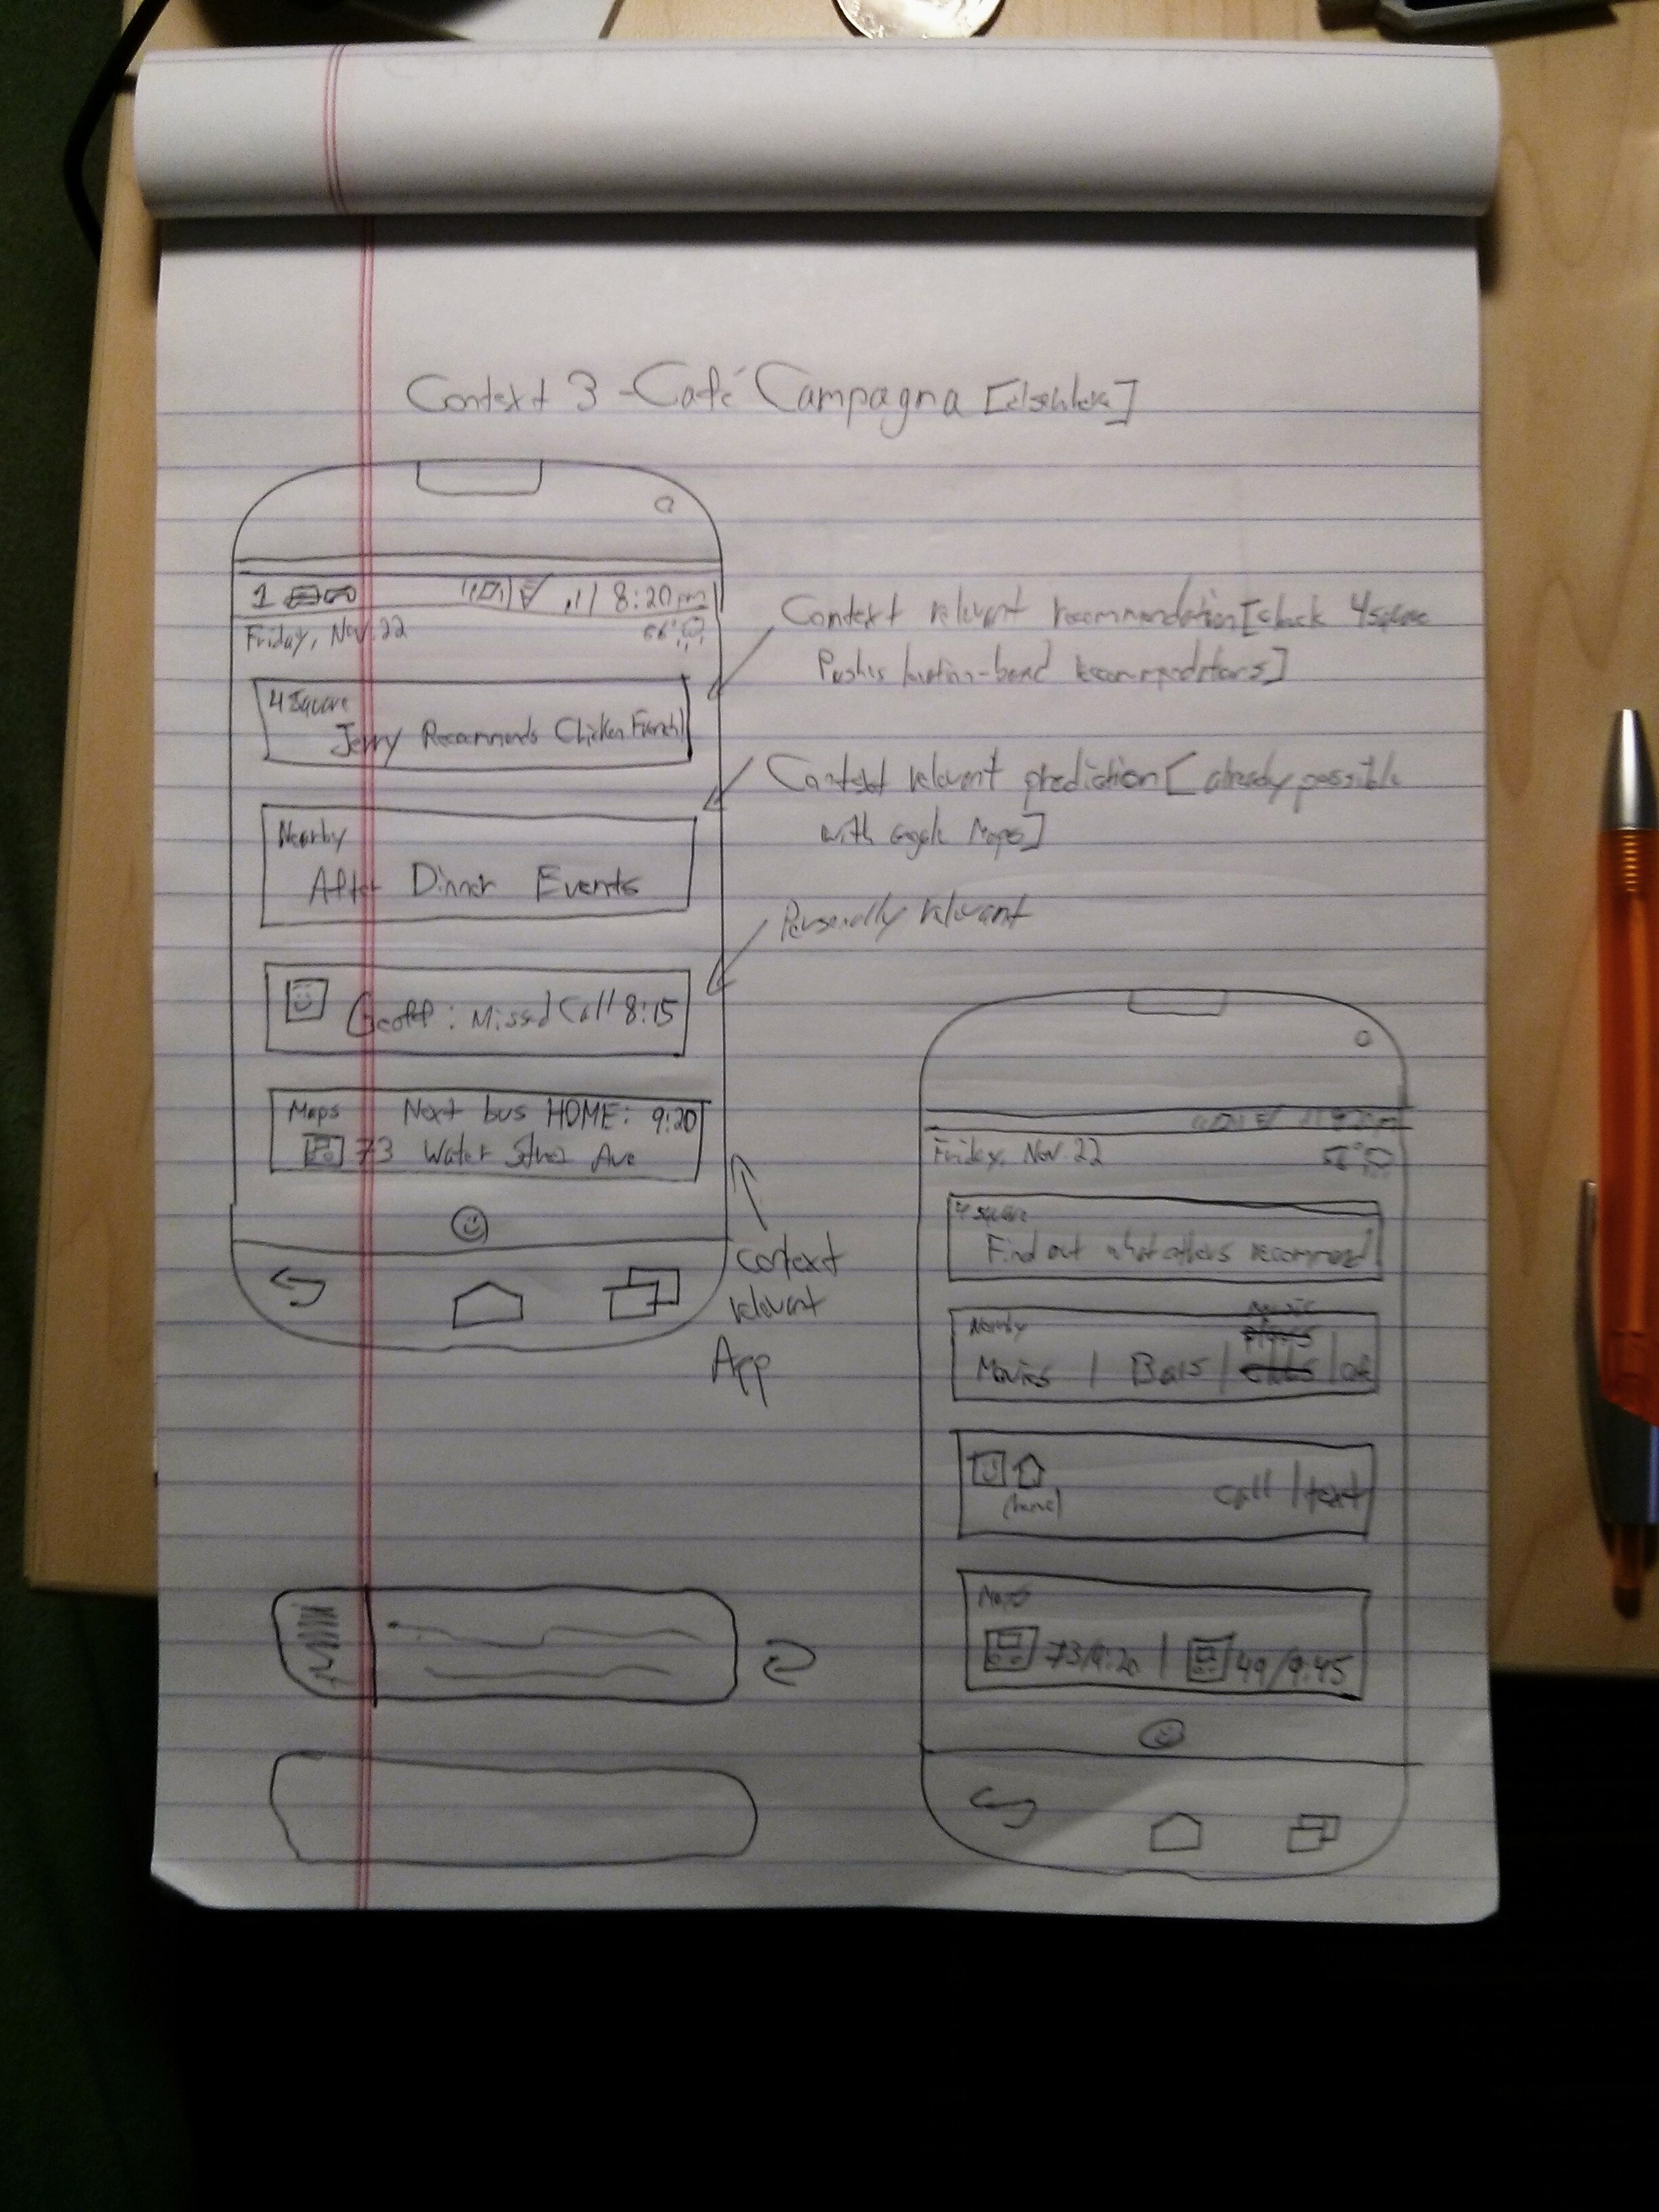 Context 3 - Café Campagna
1 8:20pm
Friday, Nov. 22 56°
4 Square
Jerry Recommends Chicken
Nearby
After Dinner Events
Geoff: Missed Call 8:15
Maps Next bus HOME: 9:20
73 Water Ave
Context relevant recommendation [check 4square
Pushes location-based recommendations]
Context relevant prediction [already possible
with google Maps]
Personally relevant
context
relevant
App
Friday, Nov. 22 56°
4 square
Find out what others recommend
Nearby music
Movies | Bars |
(home) call | text
Maps
73/9:20 | 49/9:45